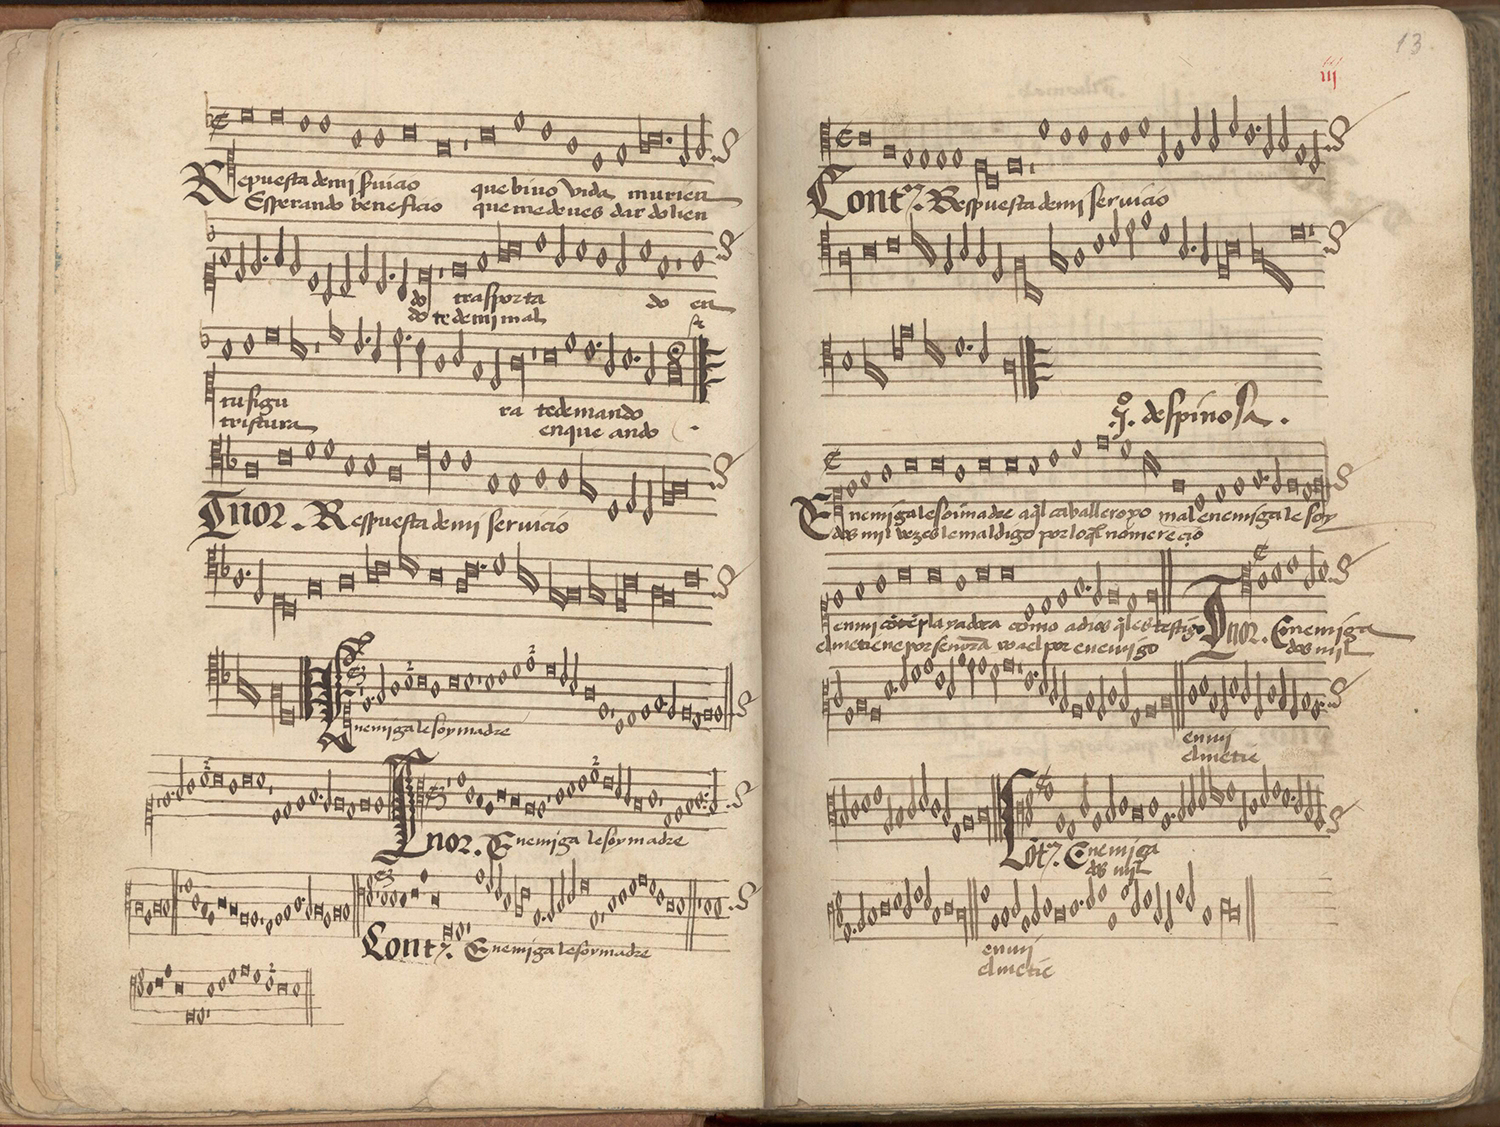 Repuesta de mi seruicio que biuo vida murien
Esperando beneficio que me deues dar dolien
do trasporta do en
do te de mi mal
tu figu ra te demando
tristura en que ando
Tnor. Respuesta de mi seruicio
Enemiga le soy madre
Tnor. Enemiga le soy madre
Cont. Enemiga le soy madre
13
iij
Cont. Respuesta de mi seruicio
Jo. despinosa.
Enemiga le soi madre aql caballero yo mal enemiga le soy
dos mil vezes le maldigo por lo ql no merecio
en mi cõtẽplayadora como adios ql es testigo
el me tiene por señora yo a el por enemigo
Tnor. Enemiga
dos mil
en mi
el me tie
Cõt. Enemiga
dos mil
en mi
el me tie